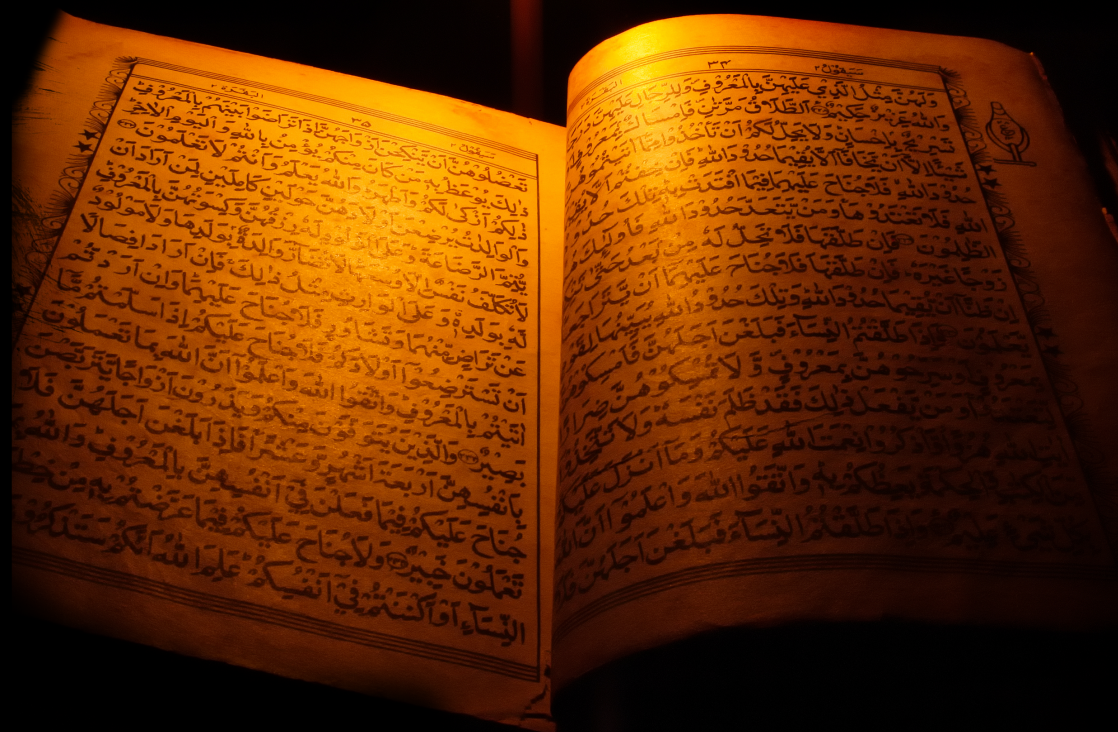 سَيَقُوْلُ ٢ ٣٤ البقرة ٢
وَلَهُنَّ مِثْلُ الَّذِيْ عَلَيْهِنَّ بِالْمَعْرُوْفِ وَلِلرِّجَالِ عَلَيْهِنَّ دَرَجَةٌ
وَاللّٰهُ عَزِيْزٌ حَكِيْمٌ اَلطَّلَاقُ مَرَّتٰنِ فَاِمْسَاكٌۢ
تَسْرِيْحٌۢ بِاِحْسَانٍ وَلَا يَحِلُّ لَكُمْ اَنْ تَاْخُذُوْا مِمَّاۤ اٰتَيْتُمُوْهُنَّ
شَيْئًا اِلَّاۤ اَنْ يَّخَافَاۤ اَلَّا يُقِيْمَا حُدُوْدَ اللّٰهِ فَاِنْ خِفْتُمْ اَلَّا يُقِيْمَا
حُدُوْدَ اللّٰهِ فَلَا جُنَاحَ عَلَيْهِمَا فِيْمَا افْتَدَتْ بِهٖ تِلْكَ حُدُوْدُ
اللّٰهِ فَلَا تَعْتَدُوْهَا وَمَنْ يَّتَعَدَّ حُدُوْدَ اللّٰهِ فَاُولٰٓئِكَ هُمُ
الظّٰلِمُوْنَ فَاِنْ طَلَّقَهَا فَلَا تَحِلُّ لَهٗ مِنْۢ بَعْدُ حَتّٰى تَنْكِحَ
زَوْجًا غَيْرَهٗ فَاِنْ طَلَّقَهَا فَلَا جُنَاحَ عَلَيْهِمَاۤ اَنْ يَّتَرَاجَعَاۤ
اِنْ ظَنَّاۤ اَنْ يُّقِيْمَا حُدُوْدَ اللّٰهِ وَتِلْكَ حُدُوْدُ اللّٰهِ يُبَيِّنُهَا لِقَوْمٍ
يَّعْلَمُوْنَ وَاِذَا طَلَّقْتُمُ النِّسَآءَ فَبَلَغْنَ اَجَلَهُنَّ فَاَمْسِكُوْهُنَّ
بِمَعْرُوْفٍ اَوْ سَرِّحُوْهُنَّ بِمَعْرُوْفٍ وَّلَا تُمْسِكُوْهُنَّ ضِرَارًا
لِّتَعْتَدُوْا وَمَنْ يَّفْعَلْ ذٰلِكَ فَقَدْ ظَلَمَ نَفْسَهٗ وَلَا تَتَّخِذُوْۤا
اٰيٰتِ اللّٰهِ هُزُوًا وَّاذْكُرُوْا نِعْمَتَ اللّٰهِ عَلَيْكُمْ وَمَاۤ اَنْزَلَ عَلَيْكُمْ
مِّنَ الْكِتٰبِ وَالْحِكْمَةِ يَعِظُكُمْ بِهٖ وَاتَّقُوا اللّٰهَ وَاعْلَمُوْۤا اَنَّ اللّٰهَ
بِكُلِّ شَيْءٍ عَلِيْمٌ وَاِذَا طَلَّقْتُمُ النِّسَآءَ فَبَلَغْنَ اَجَلَهُنَّ فَلَا
سَيَقُوْلُ ٢ ٣٥ البقرة ٢
تَعْضُلُوْهُنَّ اَنْ يَّنْكِحْنَ اَزْوَاجَهُنَّ اِذَا تَرَاضَوْا بَيْنَهُمْ بِالْمَعْرُوْفِ
ذٰلِكَ يُوْعَظُ بِهٖ مَنْ كَانَ مِنْكُمْ يُؤْمِنُ بِاللّٰهِ وَالْيَوْمِ الْاٰخِرِ
ذٰلِكُمْ اَزْكٰى لَكُمْ وَاَطْهَرُ وَاللّٰهُ يَعْلَمُ وَاَنْتُمْ لَا تَعْلَمُوْنَ
وَالْوَالِدٰتُ يُرْضِعْنَ اَوْلَادَهُنَّ حَوْلَيْنِ كَامِلَيْنِ لِمَنْ اَرَادَ اَنْ
يُّتِمَّ الرَّضَاعَةَ وَعَلَى الْمَوْلُوْدِ لَهٗ رِزْقُهُنَّ وَكِسْوَتُهُنَّ بِالْمَعْرُوْفِ
لَا تُكَلَّفُ نَفْسٌ اِلَّا وُسْعَهَا لَا تُضَآرَّ وَالِدَةٌۢ بِوَلَدِهَا وَلَا مَوْلُوْدٌ
لَّهٗ بِوَلَدِهٖ وَعَلَى الْوَارِثِ مِثْلُ ذٰلِكَ فَاِنْ اَرَادَا فِصَالًا
عَنْ تَرَاضٍ مِّنْهُمَا وَتَشَاوُرٍ فَلَا جُنَاحَ عَلَيْهِمَا وَاِنْ اَرَدْتُّمْ
اَنْ تَسْتَرْضِعُوْۤا اَوْلَادَكُمْ فَلَا جُنَاحَ عَلَيْكُمْ اِذَا سَلَّمْتُمْ مَّاۤ
اٰتَيْتُمْ بِالْمَعْرُوْفِ وَاتَّقُوا اللّٰهَ وَاعْلَمُوْۤا اَنَّ اللّٰهَ بِمَا تَعْمَلُوْنَ
بَصِيْرٌ وَالَّذِيْنَ يُتَوَفَّوْنَ مِنْكُمْ وَيَذَرُوْنَ اَزْوَاجًا يَّتَرَبَّصْنَ
بِاَنْفُسِهِنَّ اَرْبَعَةَ اَشْهُرٍ وَّعَشْرًا فَاِذَا بَلَغْنَ اَجَلَهُنَّ فَلَا
جُنَاحَ عَلَيْكُمْ فِيْمَا فَعَلْنَ فِيْۤ اَنْفُسِهِنَّ بِالْمَعْرُوْفِ وَاللّٰهُ بِمَا
تَعْمَلُوْنَ خَبِيْرٌ وَلَا جُنَاحَ عَلَيْكُمْ فِيْمَا عَرَّضْتُمْ بِهٖ مِنْ خِطْبَةِ
النِّسَآءِ اَوْ اَكْنَنْتُمْ فِيْۤ اَنْفُسِكُمْ عَلِمَ اللّٰهُ اَنَّكُمْ سَتَذْكُرُوْنَهُنَّ